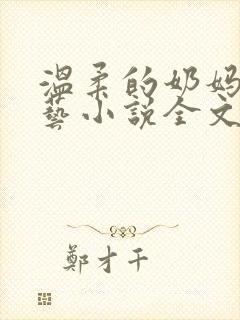 温柔的奶妈
艺小說全文
鄭才千